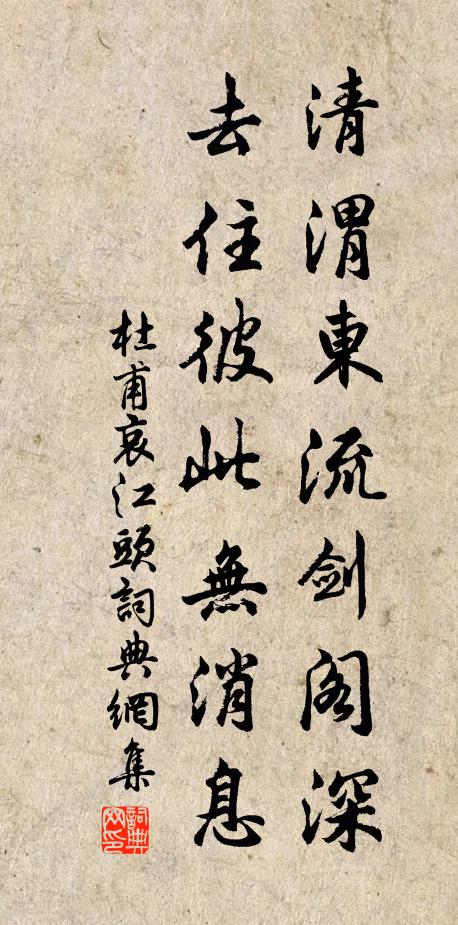 清渭東流劍閣深
去住彼此無消息
杜甫哀江頭詞典網集
詞典網印